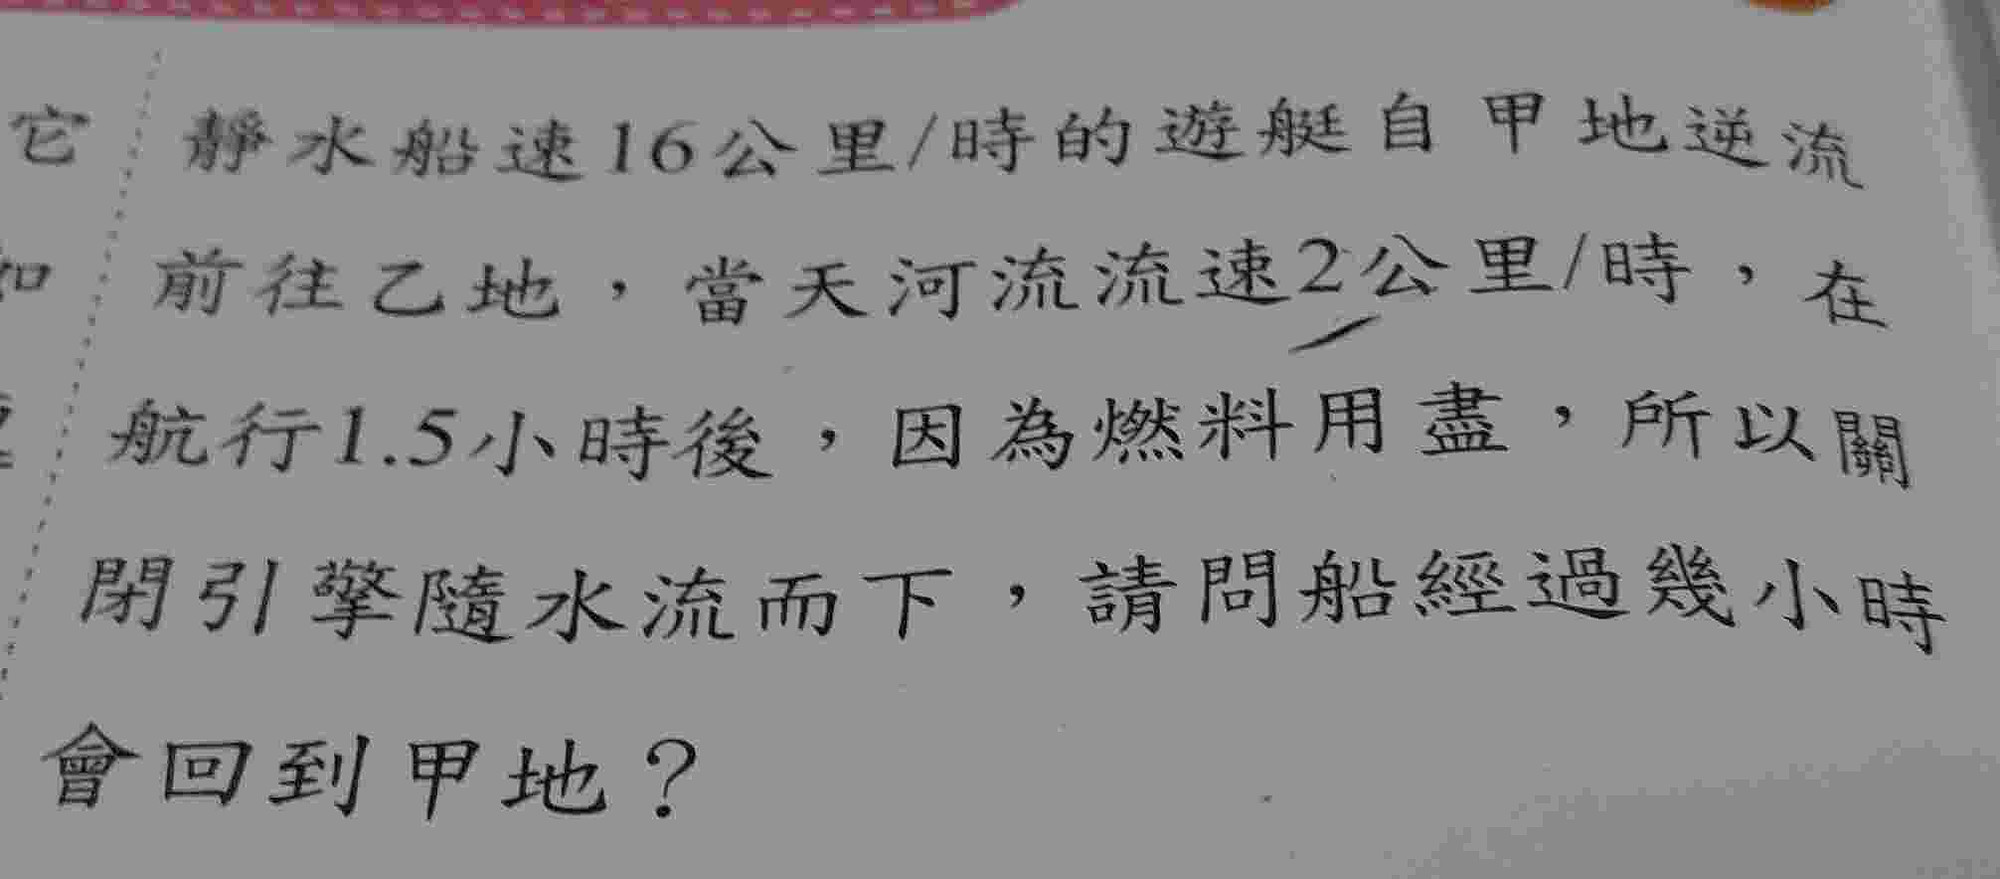 它
靜水船速16公里/時的遊艇自甲地逆流
如
前往乙地，當天河流流速2公里/時，在
航行1.5小時後，因為燃料用盡，所以關
閉引擎隨水流而下，請問船經過幾小時
會回到甲地？